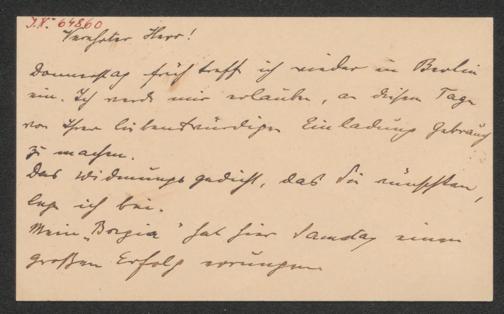 I.N. 64860
Verehrter Herr!
Donnerstag früh treffe ich wieder in Berlin
ein. Ich werde mir erlauben, an diesem Tage
von Ihrer liebenswürdigen Einladung Gebrauch
zu machen.
Das Widmungsgedicht, das Sie wünschten,
lege ich bei.
Mein „Borgia" hat hier Samstag einen
großen Erfolg errungen